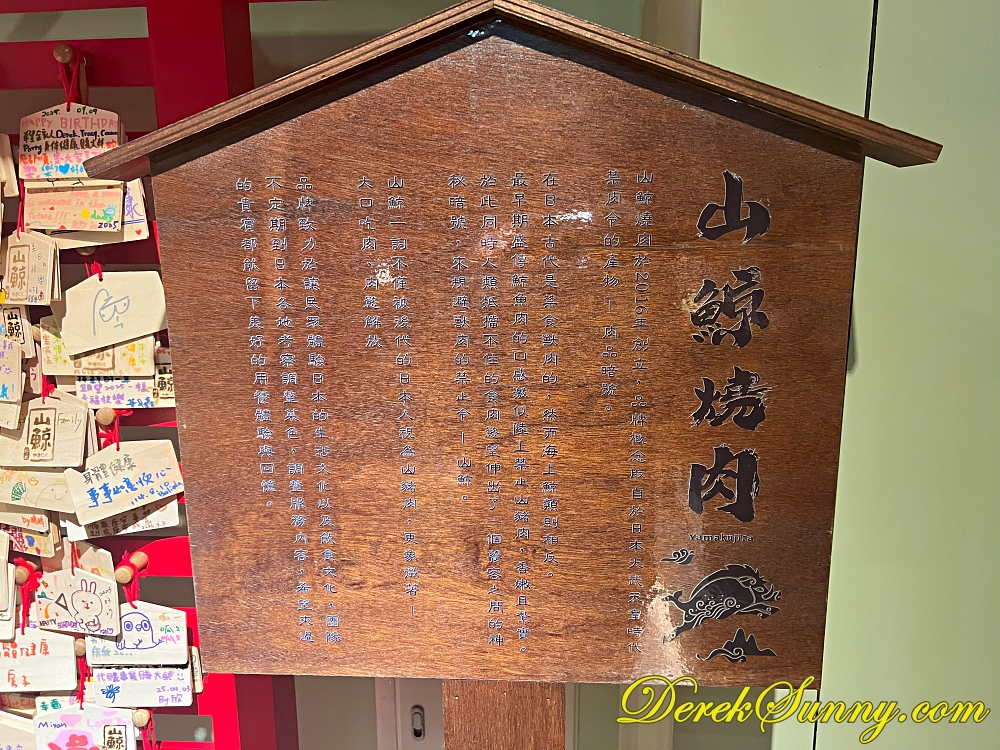 山鯨燒肉
Yamakujira
山鯨燒肉於2016年創立，品牌概念取自於日本天武天皇時代
禁肉令的產物—肉品暗號。
在日本古代是禁食獸肉的，然而海上鯨類則相反。
最早期盛傳鯨魚肉的口感類似陸上禁止山豬肉，香嫩且紮實。
於此同時人類抵擋不住的食肉慾望伸出了一個饕客之間的神
秘暗號，來規避獸肉的禁止令—山鯨。
山鯨一詞不僅被後代的日本人視為山豬肉，更象徵著—
大口吃肉、肉慾解放
品牌致力於讓民眾體驗日本的生活文化以及飲食文化，團隊
不定期到日本各地考察調整菜色，調整服務內容，希望來過
的貴賓都能留下美好的用餐體驗與回憶。
2025. 09.09
HAPPY BIRTHDAY
Derek, Tracy,
身體健康
2025
山鯨
山鯨
山鯨
Family
幸福快樂
身體健康
事事如意順心
114.9.10
HAPPY BIRTHDAY
身體健康
25.04.03
By 欣
幸福
山鯨
DerekSunny.com